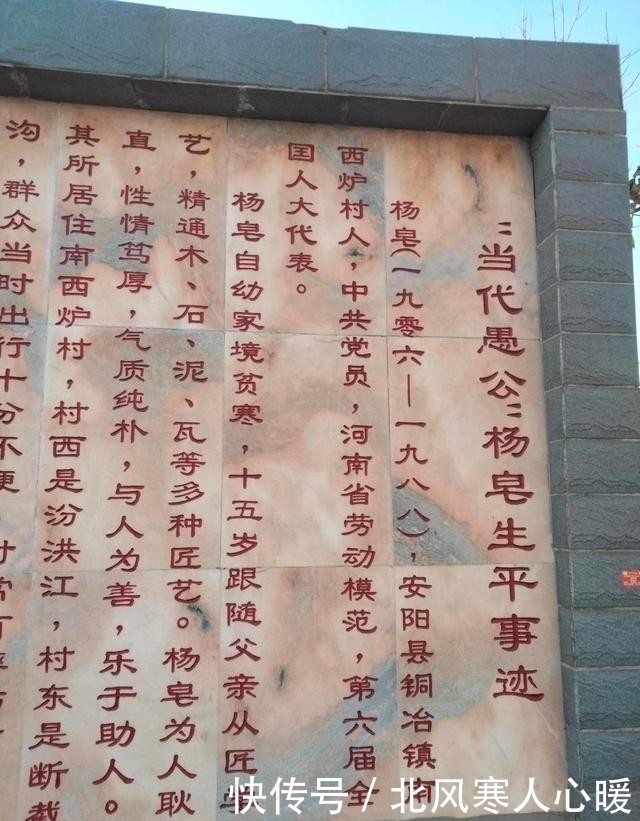 "当代愚公"杨皂生平事迹
杨皂(一九零六—一九八八)，安阳县铜冶镇南
西炉村人，中共党员，河南省劳动模范，第六届全
国人大代表。
杨皂自幼家境贫寒，十五岁跟随父亲从匠学
艺，精通木、石、泥、瓦等多种匠艺。杨皂为人耿
直，性情笃厚，气质纯朴，与人为善，乐于助人。
其所居住南西炉村，村西是汾洪江，村东是断截
沟，群众当时出行十分不便
快传号 / 北风寒人心暖